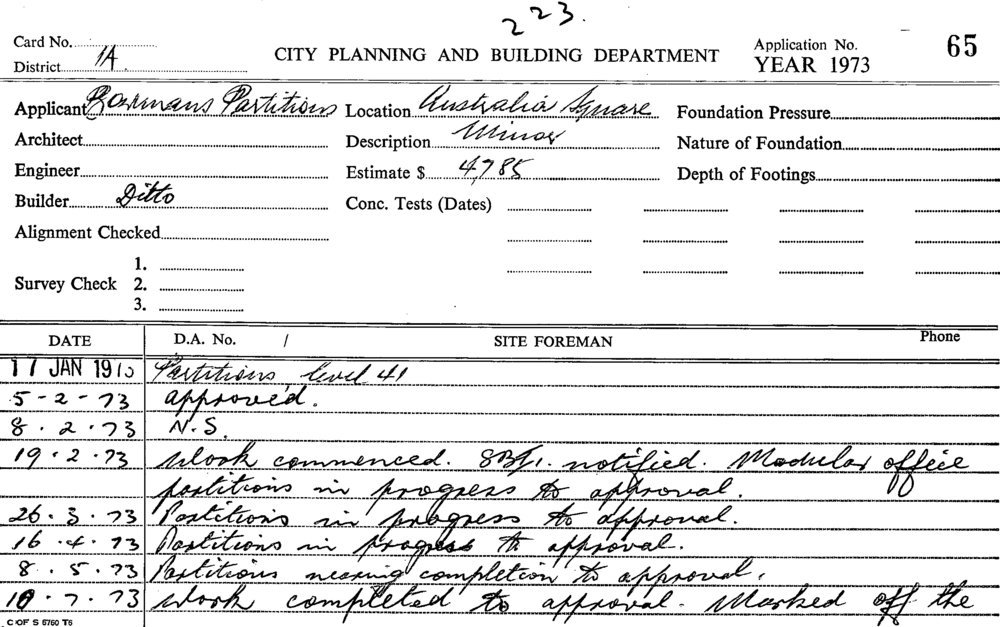 223.
Card No.
District 1A
CITY PLANNING AND BUILDING DEPARTMENT
Application No. 65
YEAR 1973
Applicant Partitions
Location Australia Square
Foundation Pressure
Architect
Description Minor
Nature of Foundation
Engineer
Estimate $ 4,785
Depth of Footings
Builder Ditto
Conc. Tests (Dates)
Alignment Checked
Survey Check
1.
2.
3.
DATE D.A. No. / SITE FOREMAN Phone
17 JAN 1973 Partitions, level 41
5-2-73 approved.
8.2.73 N.S.
19.2.73 Work commenced. notified. Modular office
partitions in progress to approval.
26.3.73 Partitions in progress to approval.
16.4.73 Partitions in progress to approval.
8.5.73 Partitions nearing completion to approval.
10.7.73 Work completed to approval. Marked off the
C OF S 6760 T6